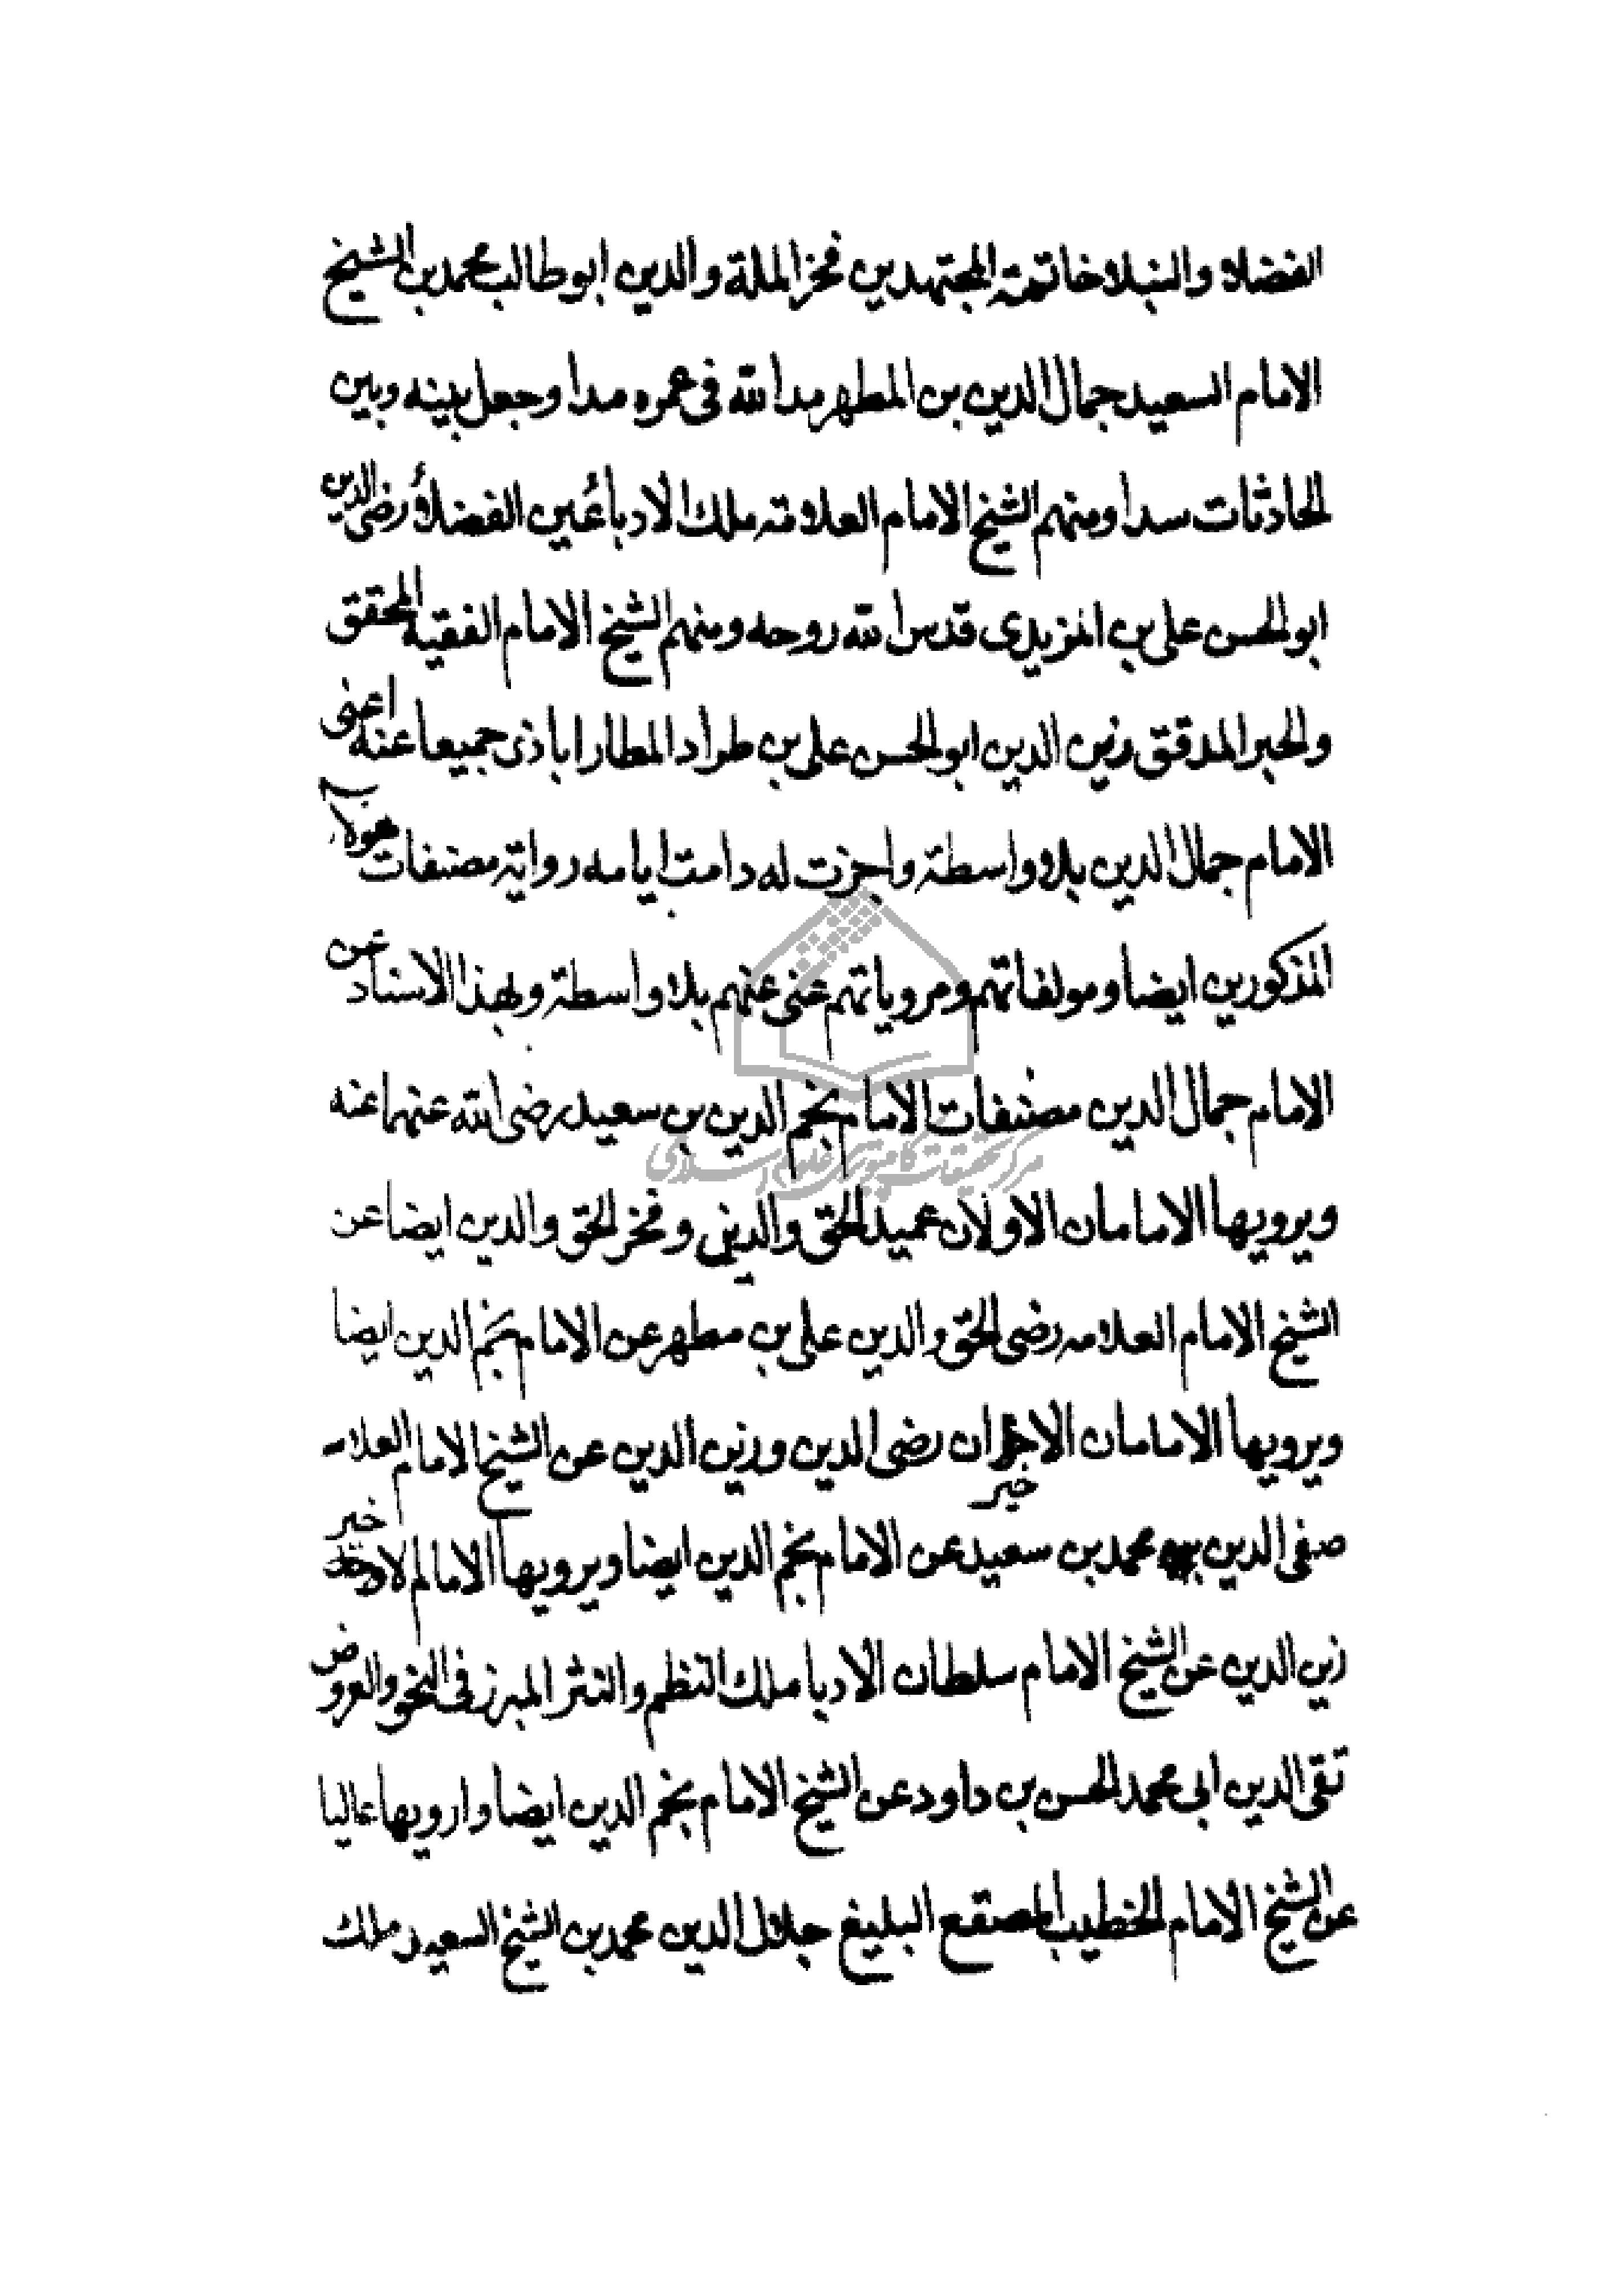 الفضلا والنبلا خاتمة المجتهدين فخر الملة والدين ابوطالب محمد بن الشيخ
الامام السعيد جمال الدين بن المطهر مد الله فى عمره مدا وجعل بينه وبين
الحادثات سدا ومنهم الشيخ الامام العلامة ملك الادباء عين الفضلاء رضى الدين
ابوالحسن على بن المزيدى قدس الله روحه ومنهم الشيخ الامام الفقيه المحقق
والحبر المدقق زين الدين ابوالحسن على بن طراد المطارابادى جميعا عنه اعنى
الامام جمال الدين بلا واسطة واجزت له دامت ايامه رواية مصنفات هولاء
المذكورين ايضا ومولفاتهم ومروياتهم عنى عنهم بلا واسطة وبهذا الاسناد عن
الامام جمال الدين مصنفات الامام نجم الدين بن سعيد رضى الله عنهما عنه
ويرويها الامامان الاولان عميد الحق والدين وفخر الحق والدين ايضا عن
الشيخ الامام العلامه رضى الحق والدين على بن مطهر عن الامام نجم الدين ايضا
ويرويها الامامان الاخيران رضى الدين وزين الدين عن الشيخ الامام العلامه
خير
صفى الدين محمد بن سعيد عن الامام نجم الدين ايضا ويرويها الامام الاخير
زين الدين عن الشيخ الامام سلطان الادبا ملك النظم والنثر المبرز فى النحو والعروض
تقى الدين ابى محمد الحسن بن داود عن الشيخ الامام نجم الدين ايضا وارويها عاليا
عن الشيخ الامام الخطيب المصقع البليغ جلال الدين محمد بن الشيخ السعيد ملك
مركز تحقيقات كامپيوترى علوم اسلامى